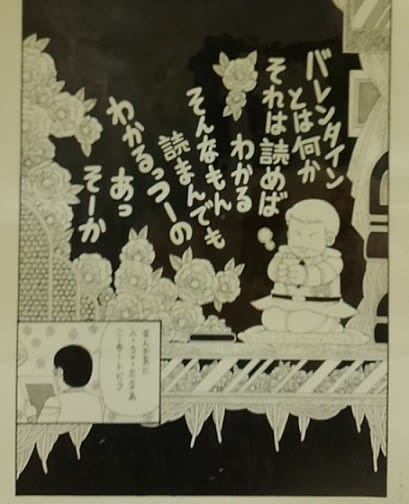 バレンタイン
とは何か
それは読めば
わかる
そんなもん
読まんでも
わかるっつーの
あっ
そーか
気に
入っちゃったなあ